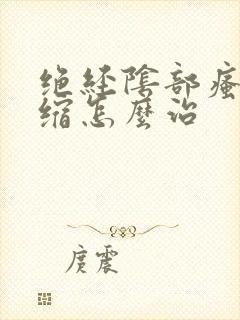 绝经阴部瘙
缩怎麽治
庹震